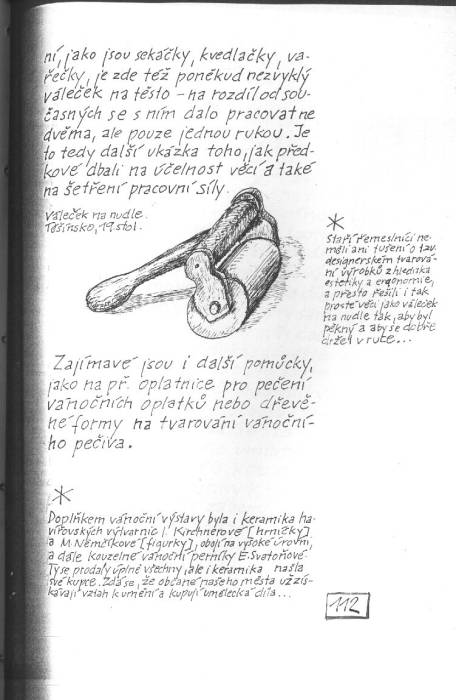 ní, jako jsou sekáčky, kvedlačky, va-
řečky, je zde též poněkud nezvyklý
váleček na těsto - na rozdíl od sou-
časných se s ním dalo pracovat ne
dvěma, ale pouze jednou rukou. Je
to tedy další ukázka toho, jak před-
kové dbali na účelnost věcí a také
na šetření pracovní síly.
Váleček na nudle.
Těšínsko, 19. stol.
*
Staří řemeslníci ne-
měli ani tušení o tzv.
designerském tvarová-
ní výrobků z hlediska
estetiky a ergonomie,
a přesto řešili i tak
prosté věci jako váleček
na nudle tak, aby byl
pěkný a aby se dobře
držel v ruce...
Zajímavé jsou i další pomůcky,
jako na př. oplatnice pro pečení
vánočních oplatků nebo dřevě-
né formy na tvarování vánoční-
ho pečiva.
*
Doplňkem vánoční výstavy byla i keramika ha-
vířovských výtvarnic I. Kirchnerové [hrníčky]
a M. Němčíkové [figurky], obojí na vysoké úrovni,
a dále kouzelné vánoční perníky E. Svatoňové
Ty se prodaly úplně všechny, ale i keramika našla
své kupce. Zdá se, že občané našeho města už zís-
kávají vztah k umění a kupují umělecká díla...
112